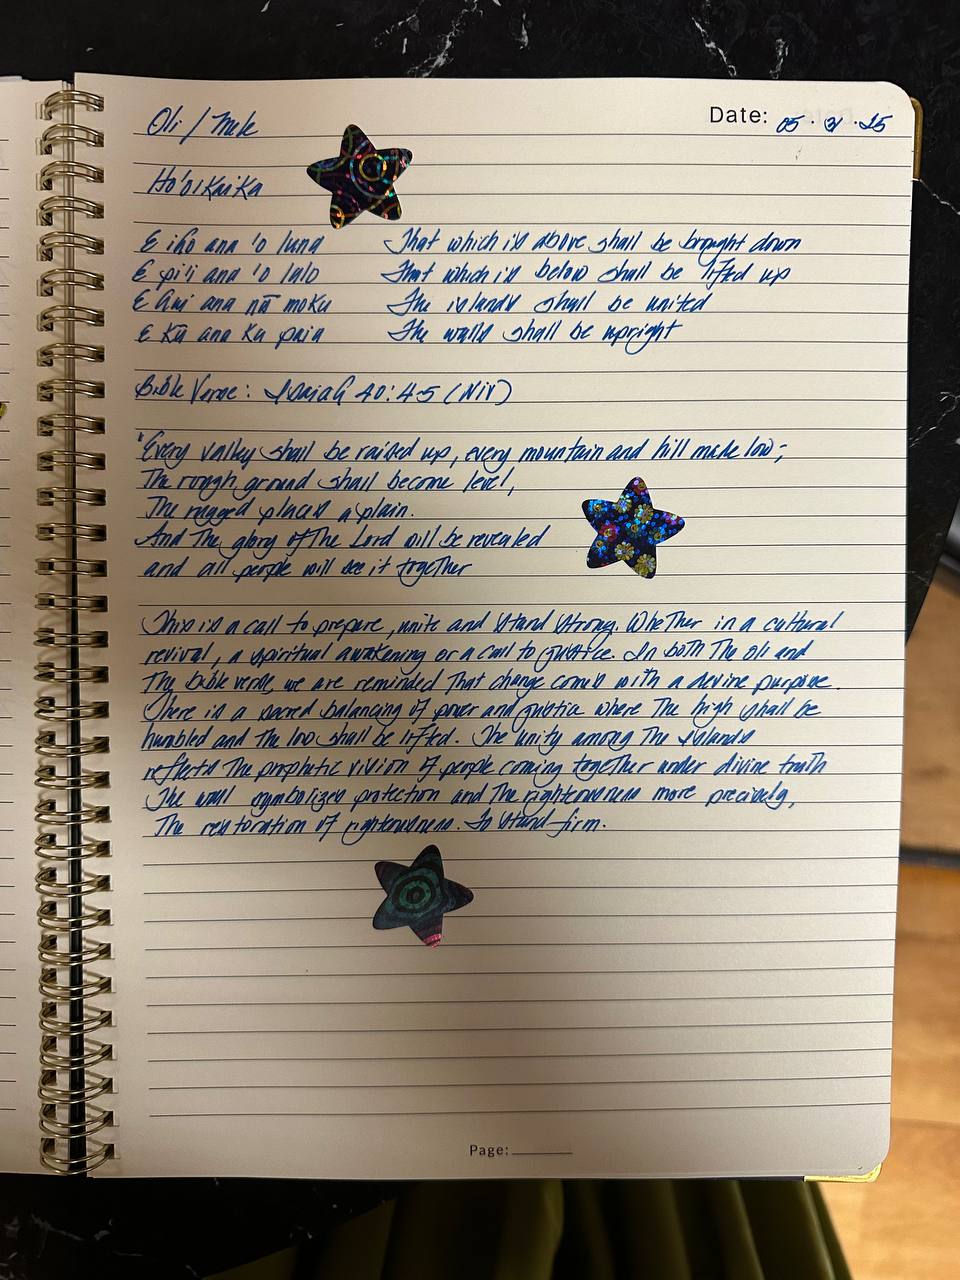 Oli / Mele
Date: 05 · 31 · 25
Ho'oikaika
E iho ana 'o luna That which is above shall be brought down
E pi'i ana 'o lalo That which is below shall be lifted up
E hui ana nā moku The islands shall be united
E kū ana ka paia The walls shall be upright
Bible Verse: Isaiah 40:4-5 (NIV)
"Every valley shall be raised up, every mountain and hill made low;
The rough ground shall become level,
The rugged places a plain.
And The glory of The Lord will be revealed
and all people will see it together
This is a call to prepare, unite and stand strong. Whether in a cultural
revival, a spiritual awakening or a call to justice. In both The oli and
The bible verse, we are reminded That change comes with a devine purpose.
There is a sacred balancing of power and justice where The high shall be
humbled and The low shall be lifted. The unity among The islands
reflects The prophetic vision of people coming together under divine truth
The wall symbolizes protection and The righteousness more precisely,
The restoration of righteousness. To stand firm.
Page: